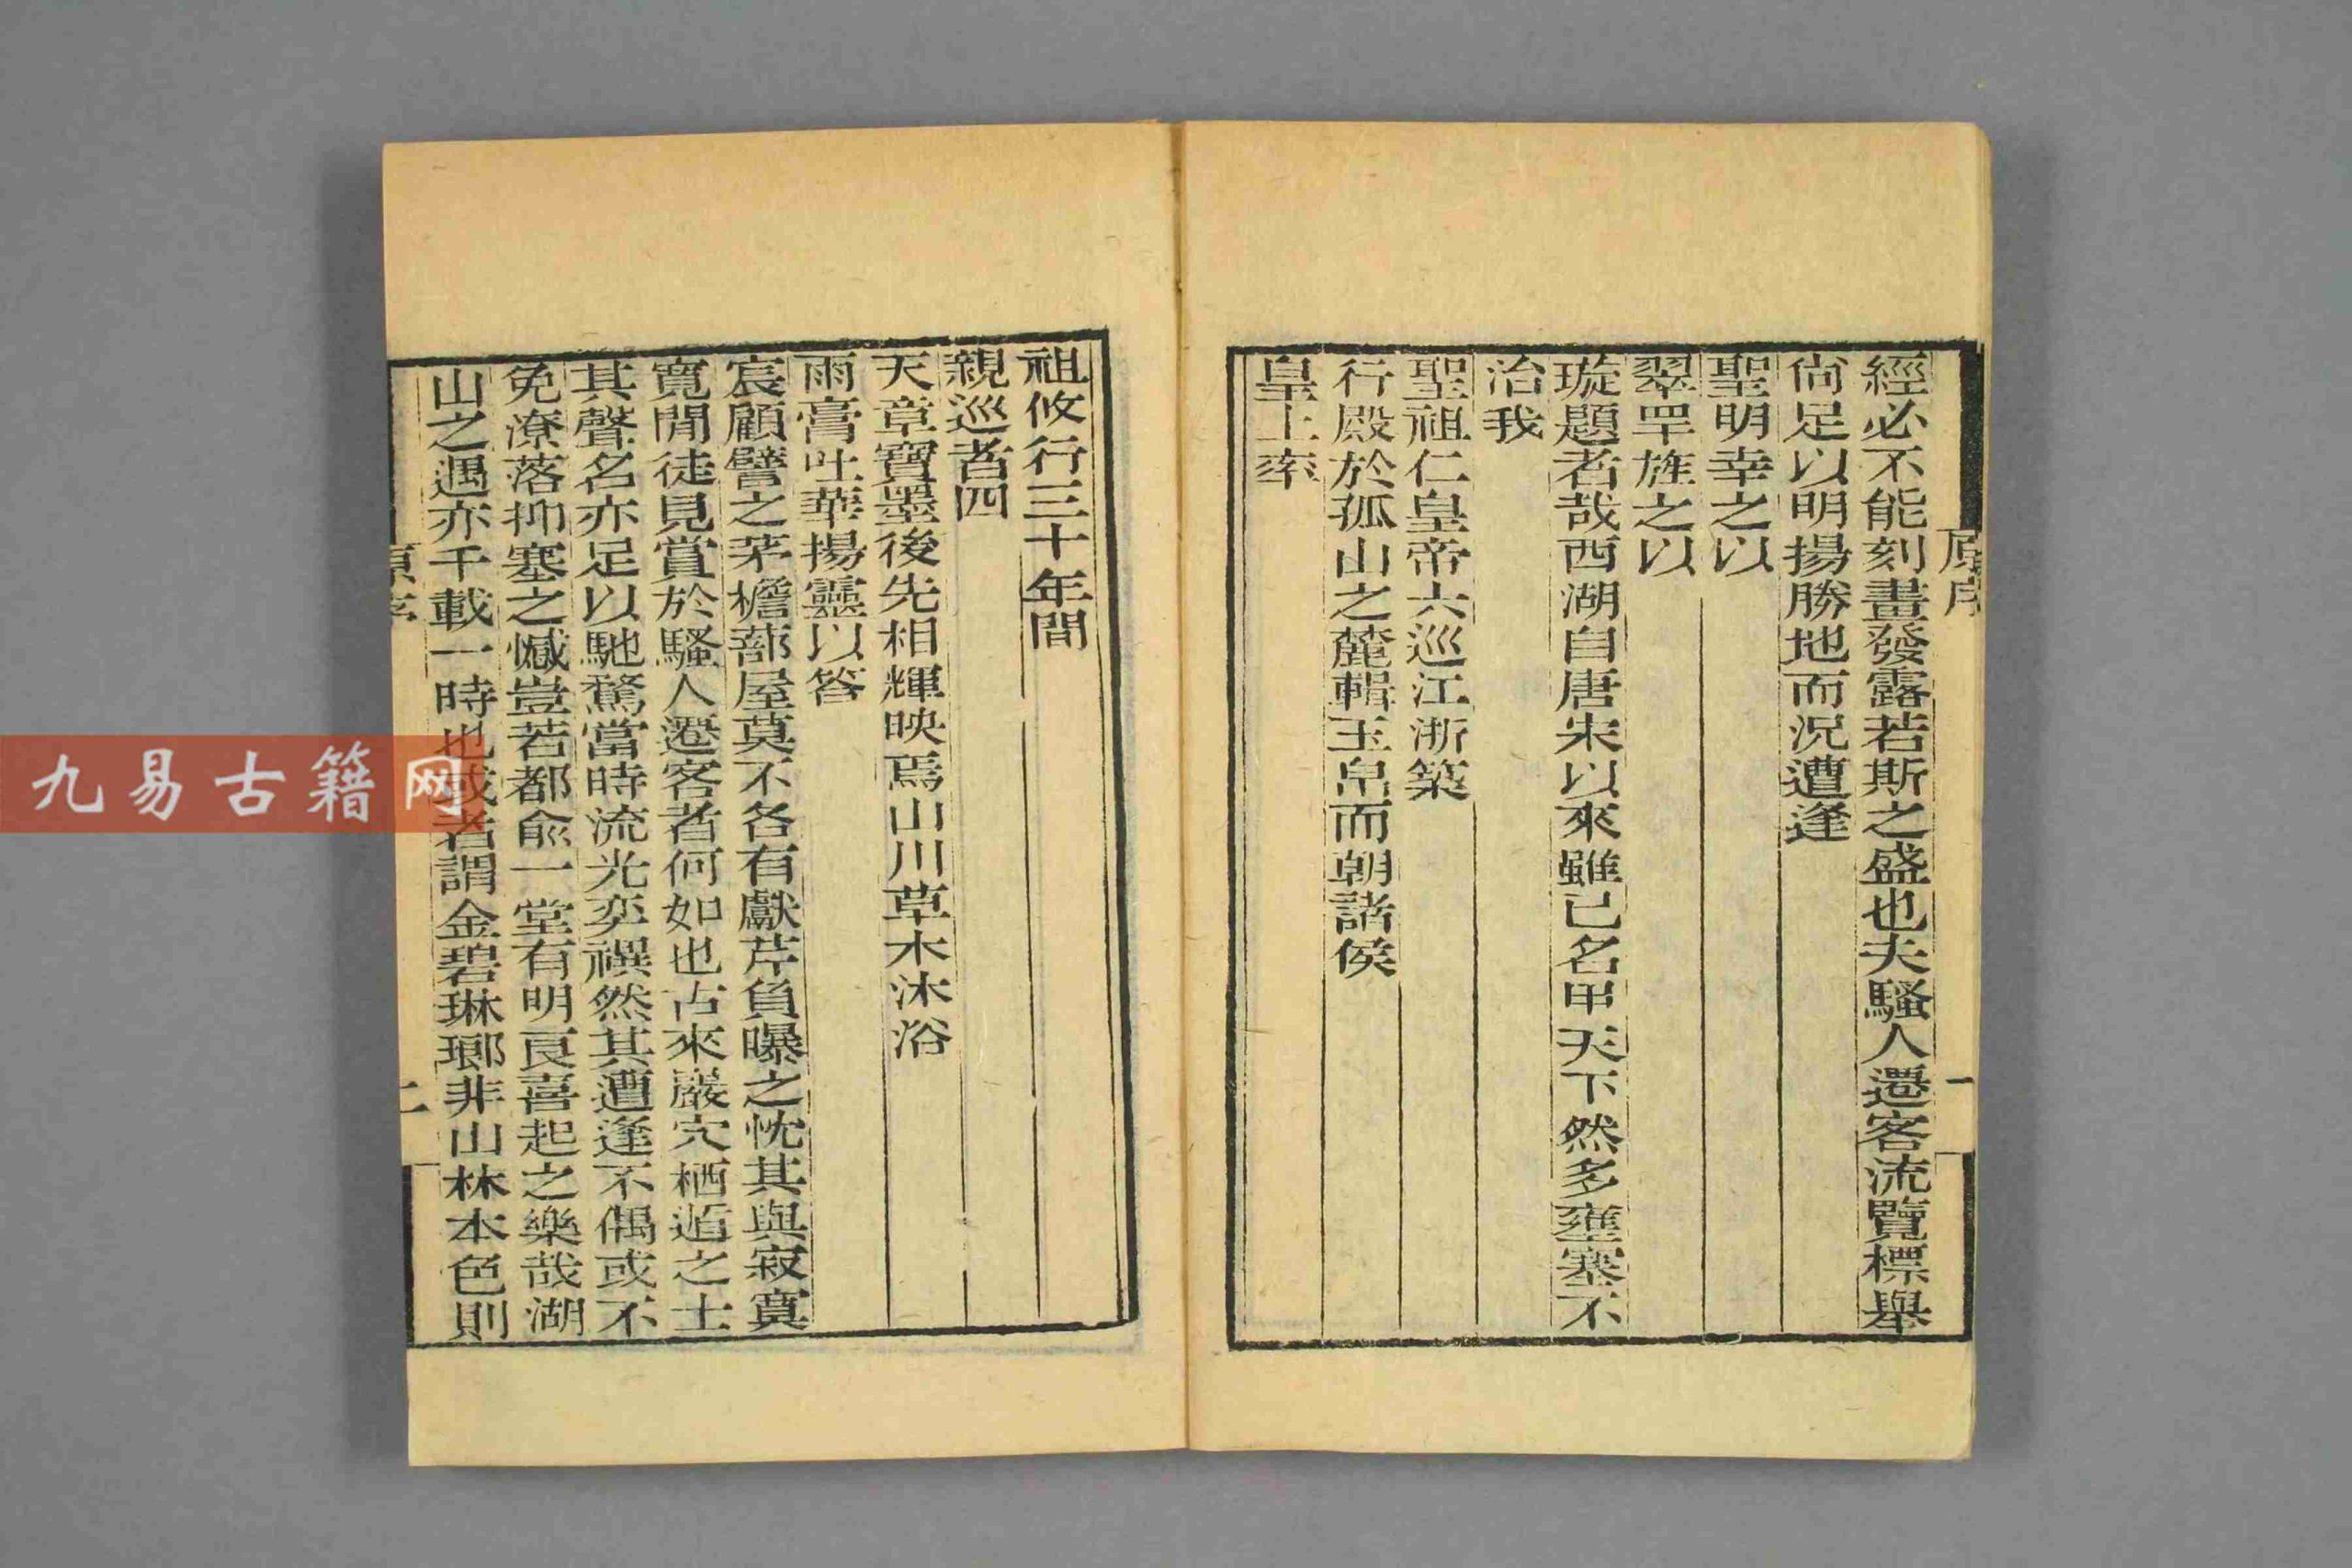 原序
一
經必不能刻畫發露若斯之盛也夫騷人遷客流覽標舉
尙足以明揚勝地而況遭逢
聖明幸之以
翠罕旌之以
璇題者哉西湖自唐宋以來雖已名甲天下然多壅塞不
治我
聖祖仁皇帝六巡江浙築
行殿於孤山之麓輯玉帛而朝諸侯
皇上率
祖攸行三十年間
親巡者四
天章寶墨後先相輝映焉山川草木沐浴
雨膏吐華揚靈以答
宸顧譬之茅檐蔀屋莫不各有獻芹負曝之忱其與寂寞
寬閒徒見賞於騷人遷客者何如也古來巖穴栖遁之士
其聲名亦足以馳騖當時流光奕禩然其遭逢不偶或不
免潦落抑塞之憾豈若都兪一堂有明良喜起之樂哉湖
山之遇亦千載一時也或者謂金碧琳瑯非山林本色則
原序
二
九易古籍网